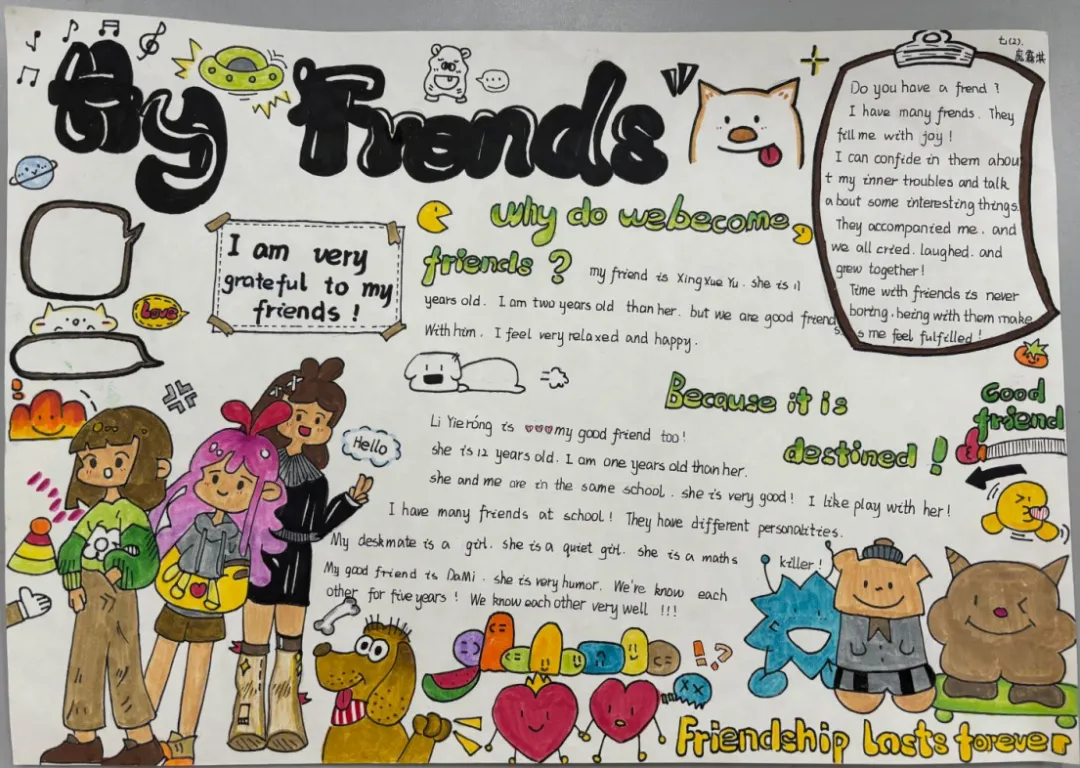 My Friends
七(2).
Do you have a friend ?
I have many friends. They
fill me with joy !
I can confide in them abou
t my inner troubles and talk
about some interesting things.
They accompanied me, and
we all cried. laughed. and
grew together !
Time with friends is never
boring. being with them make
s me feel fulfilled !
I am very
grateful to my
friends !
Love
Why do we become
friends ?
my friend is Xing Xue Yu. she is 11
years old. I am two years old than her. but we are good friends.
With him. I feel very relaxed and happy.
Because it is
destined !
Good
friend
Hello
Li Yierong is my good friend too!
she is 12 years old. I am one years old than her.
she and me are in the same school. she is very good! I like play with her!
I have many friends at school! They have different personalities.
My deskmate is a girl. she is a quiet girl. she is a maths killer!
My good friend is DaMi. she is very humor. We're know each
other for five years ! We know each other very well !!!
!?
Friendship lasts forever